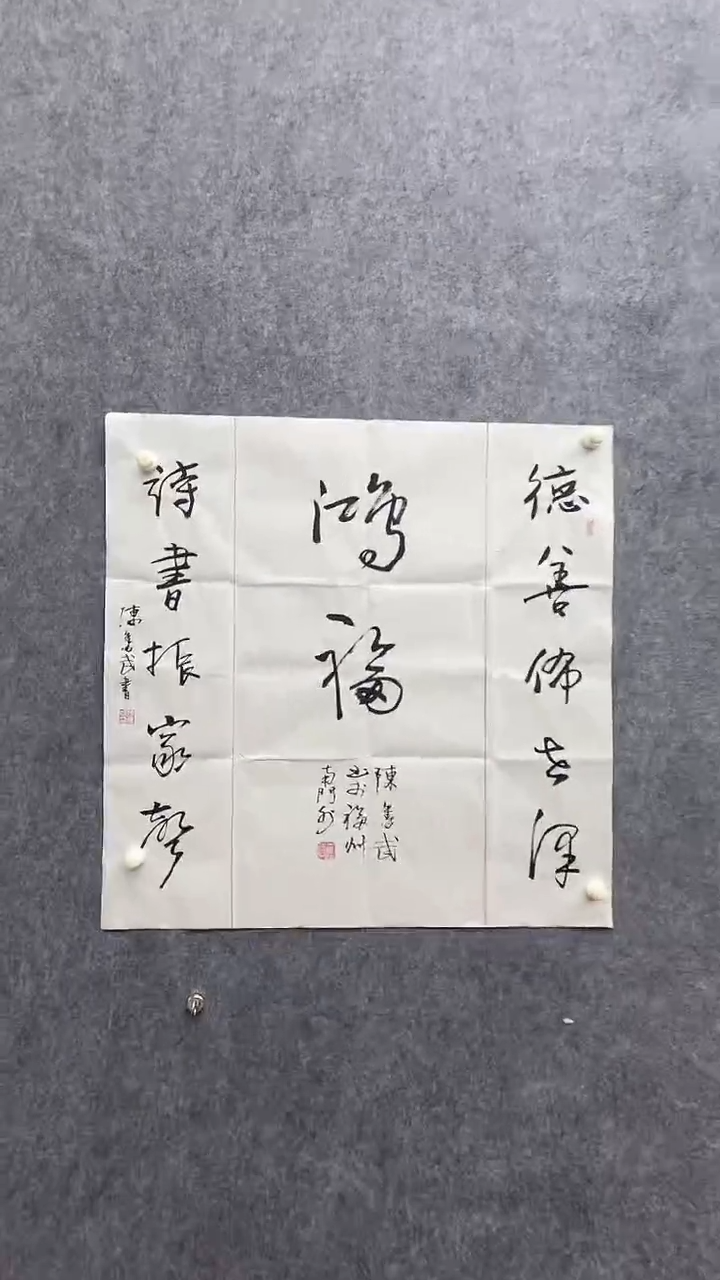 德善佈世澤
鴻福
陳
書於福州
南門外
詩書振家聲
陳
書